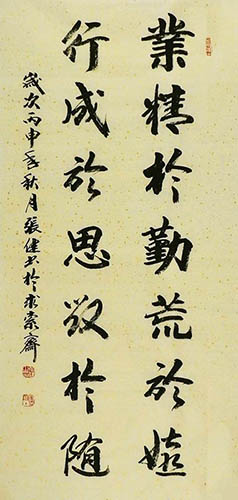 業精於勤荒於嬉
行成於思毀於隨
歲次丙申年秋月張健书於求索齋